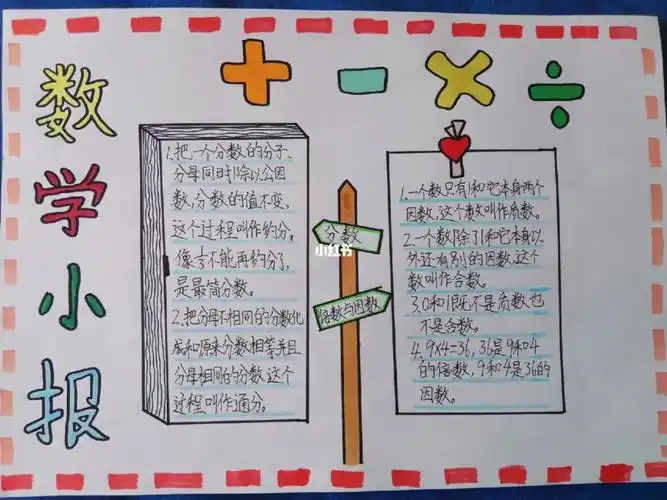 数学小报
+ − × ÷
1.把一个分数的分子、
分母同时除以公因
数,分数的值不变,
这个过程叫作约分。
像⅓不能再约分了,
是最简分数。
2.把分母不相同的分数化
成和原来分数相等并且
分母相同的分数,这个
过程叫作通分。
分数
小红书
倍数与因数
1.一个数只有1和它本身两个
因数,这个数叫作质数。
2.一个数除了1和它本身以
外还有别的因数,这个
数叫作合数。
3.0和1既不是质数也
不是合数。
4.9×4=36,36是9和4
的倍数,9和4是36的
因数。